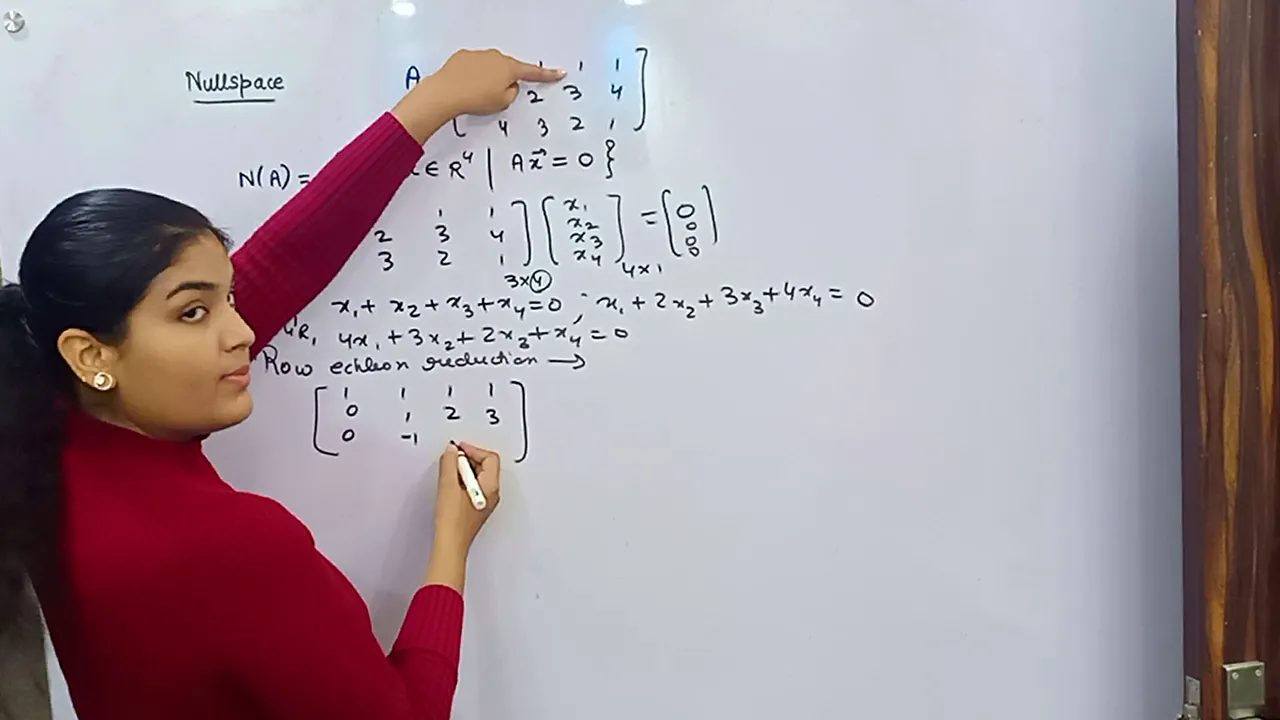 Nullspace A 1 1 1
2 3 4
4 3 2 1
N(A) = x ∈ R⁴ | Ax⃗ = 0 }
1 1 x₁ 0
2 3 4 x₂ = 0
3 2 1 x₃ 0
x₄ 0
3x4 4x1
x₁ + x₂ + x₃ + x₄ = 0 ; x₁ + 2x₂ + 3x₃ + 4x₄ = 0
4x₁ + 3x₂ + 2x₃ + x₄ = 0
Row echleon reduction →
1 1 1 1
0 1 2 3
0 -1